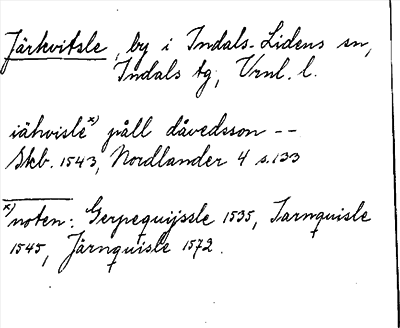 Järkvitsle, by i Indals-Lidens sn,
Indals tg, Vrnl. l.
iähvisle x) påll dåvedsson --
Skb. 1543, Nordlander 4 s. 133
x) noten: Gerpequijssle 1535, Iarnquisle
1545, Järnquisle 1572.